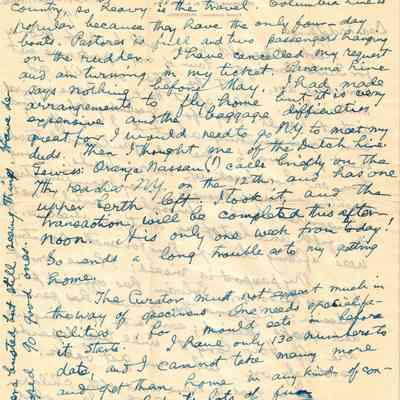 Country, so heavy is the travel. Columbia Line is
popular because they have the only four-day
boats. Pastores is full and two passengers hanging
on the rudder. I have cancelled my request
and am turning in my ticket. Panama Line
says nothing before May. I had made
arrangements to fly home but it is very
expensive and the baggage difficulties
great for I would need to go N.Y. to meet my
duds. Then I thought, one of the Dutch line
Swiss: Oranje Nassau (!) calls briefly on the
7th, reaches N.Y. on the 12th, and has one
upper berth left. I took it and the
transaction will be completed this after-
noon. It is only one week from today!
So ends a long trouble as to my getting
home.
The Curator must not expect much in
the way of specimens. One needs special fa-
cilities for mould sets in before
it starts. I have only 130 numbers to
date, and I cannot take many more
and get them home in any kind of con-
lots of fun
busted but still seeing things. Have de-
90 good ones.